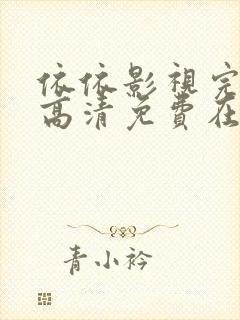 依依影視完
高清免費在
青小衿